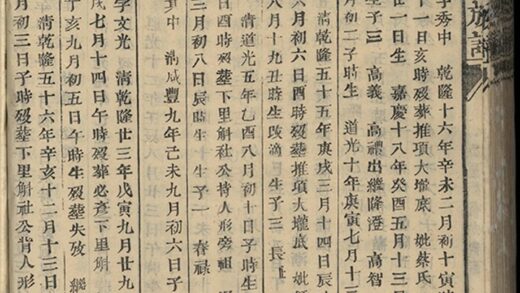 族譜
字秀中 乾隆十六年辛未二月初十寅時
十一日亥時歿葬推項大壠底 妣蔡氏
廿一日生 嘉慶十八年癸酉五月十三日
生子三 高義 高禮出繼隆澄 高智
二子時生 道光十年庚寅七月十三
初六日酉時歿葬推項大壠底
清乾隆五十五年庚戌三月十四日辰
八月十九丑時生改適 生子三 長
清道光五年乙酉八月初十日子時生
日酉時歿塟下里斛社公背人形旁祖
三月初八日辰時生 生子一 春祿
其中 清咸豐九年己未九月初六日子
字文光 清乾隆廿三年戊寅九月廿九
戌七月十四日午時歿葬必查下里斛
丁亥九月初五日午時生歿塟失攷 繼
清乾隆五十六年辛亥十二月十三日
三月初三日子時歿塟下里斛社公背人形